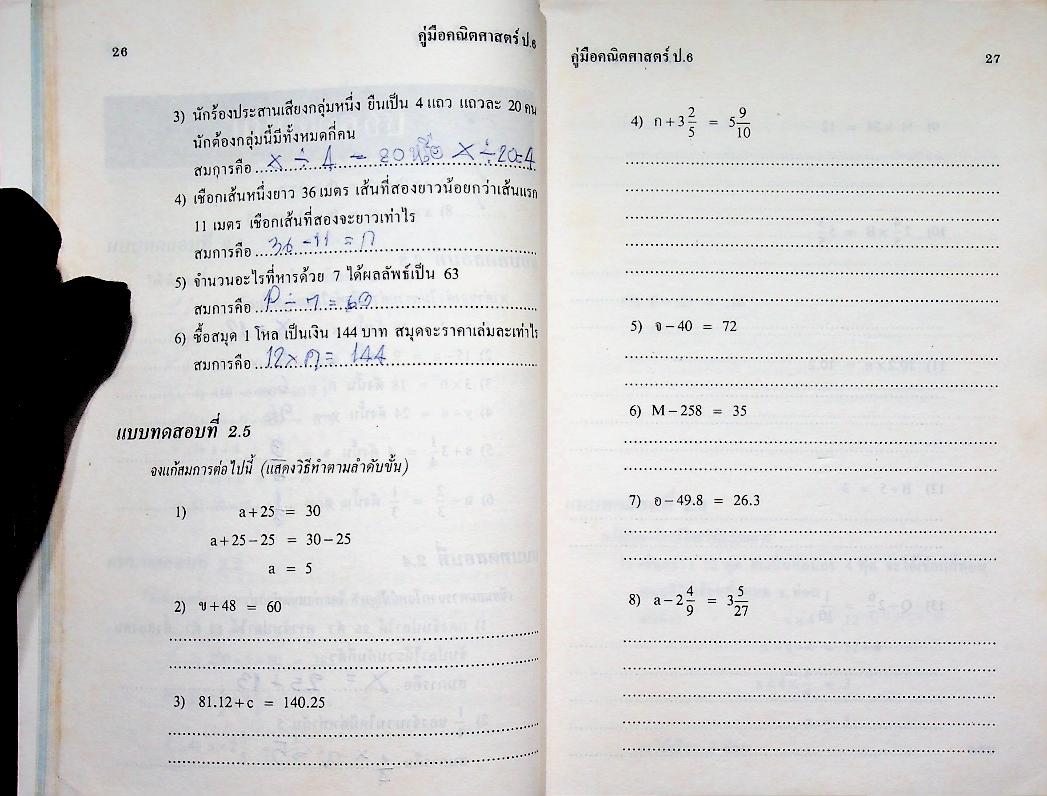 26
คู่มือคณิตศาสตร์ ป.6
3) นักร้องประสานเสียงกลุ่มหนึ่ง ยืนเป็น 4 แถว แถวละ 20 คน
นักต้องกลุ่มนี้มีทั้งหมดกี่คน
สมการคือ X ÷ 4 = 20 หรือ X ÷ 20=4
4) เชือกเส้นหนึ่งยาว 36 เมตร เส้นที่สองยาวน้อยกว่าเส้นแรก
11 เมตร เชือกเส้นที่สองจะยาวเท่าไร
สมการคือ 36 - 11 = ก
5) จำนวนอะไรที่หารด้วย 7 ได้ผลลัพธ์เป็น 63
สมการคือ P ÷ 7 = 63
6) ซื้อสมุด 1 โหล เป็นเงิน 144 บาท สมุดจะราคาเล่มละเท่าไร
สมการคือ 12 × ก = 144
แบบทดสอบที่ 2.5
จงแก้สมการต่อไปนี้ (แสดงวิธีทำตามลำดับขั้น)
1) a+25 = 30
a+25-25 = 30-25
a = 5
2) ข+48 = 60
3) 81.12+c = 140.25
คู่มือคณิตศาสตร์ ป.6
27
4) ก+3 2/5 = 5 9/10
5) จ-40 = 72
6) M-258 = 35
7) อ-49.8 = 26.3
8) a-2 4/9 = 3 5/27